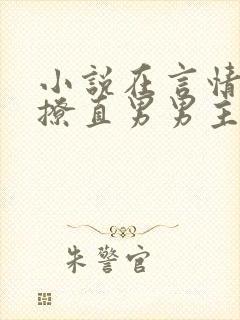 小說在言情
撩直男男主
朱警官